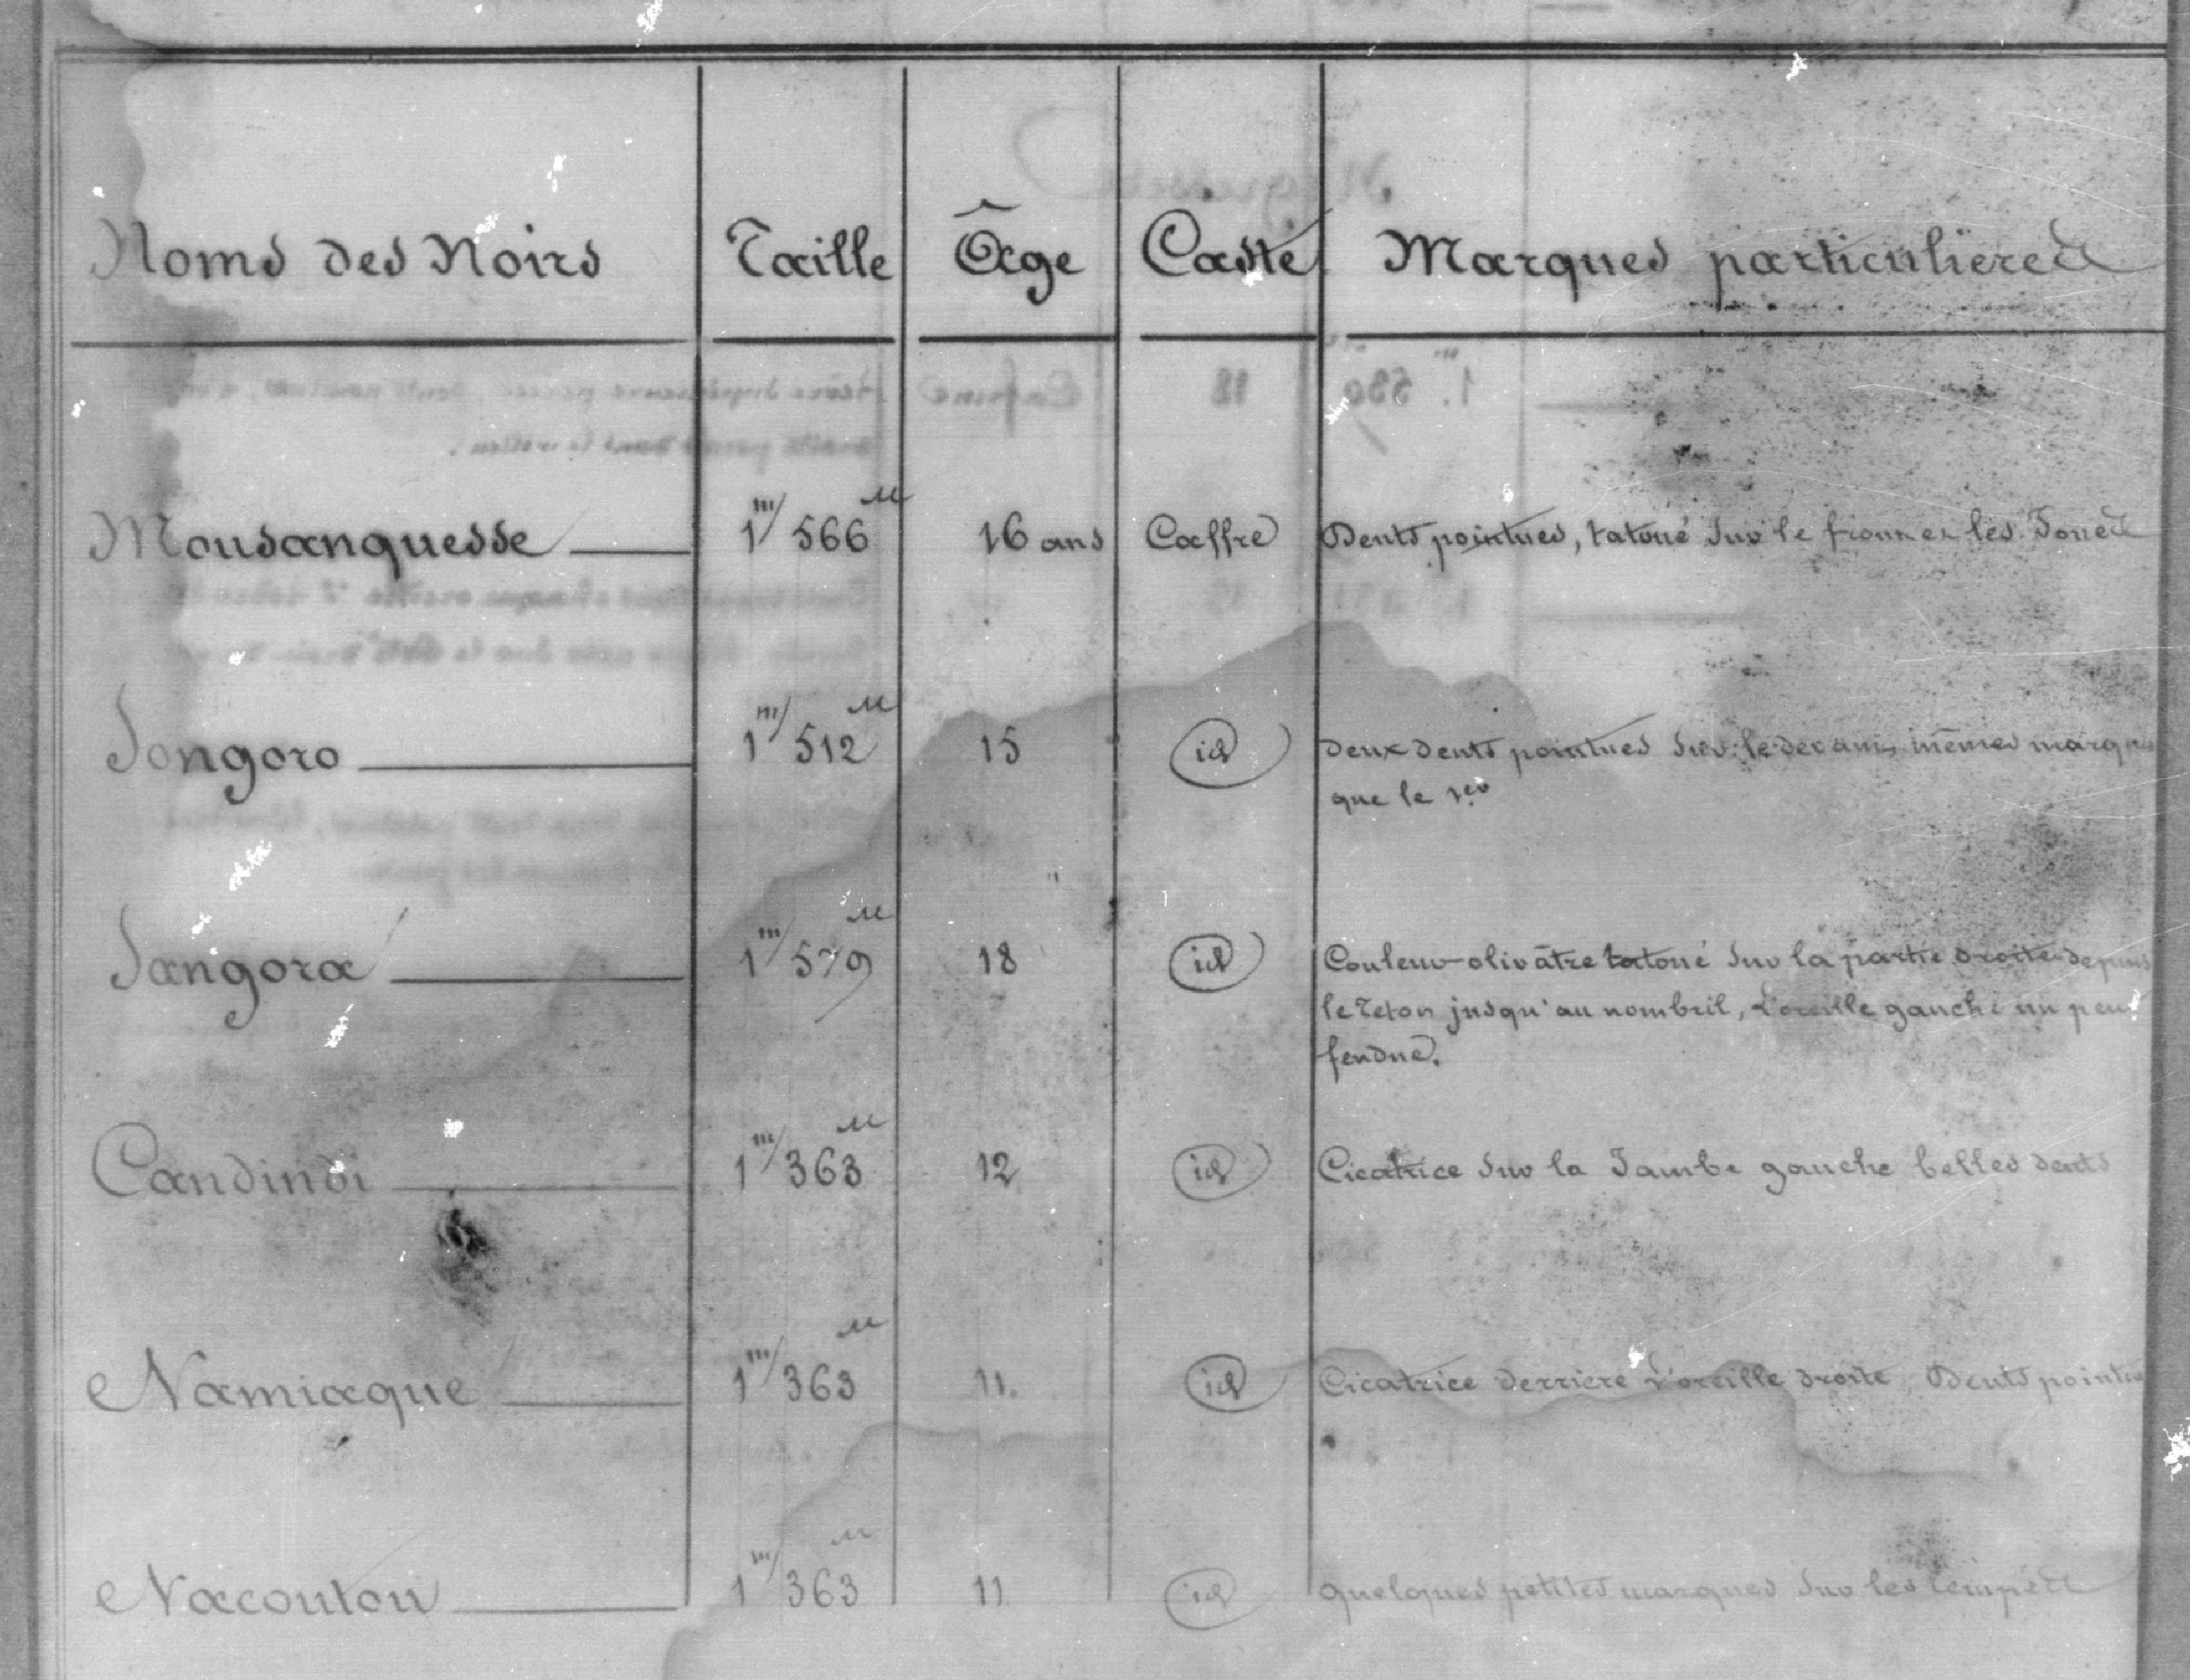 Noms des Noirs Taille Âge Caste Marques particulieres
Mousanquesse 1 m/ 566 M 16 ans Caffre Dents pointues, tatoué sur le front et les Joues
Songoro 1 m/ 512 M 15 id deux dents pointues sur le devant, mêmes marques
que le 1er
Sangora 1 m/ 579 M 18 id Couleur olivâtre tatoué sur la partie droite depuis
le Teton jusqu'au nombril, L'oreille gauche un peu
fendue.
Candindi 1 m/ 363 M 12 id Cicatrice sur la Jambe gauche belles dents
Namiaque 1 m/ 363 M 11. id Cicatrice derriere L'oreille droite, Dents pointues
Nacoutou 1 m/ 363 M 11 id quelques petites marques sur les tempes